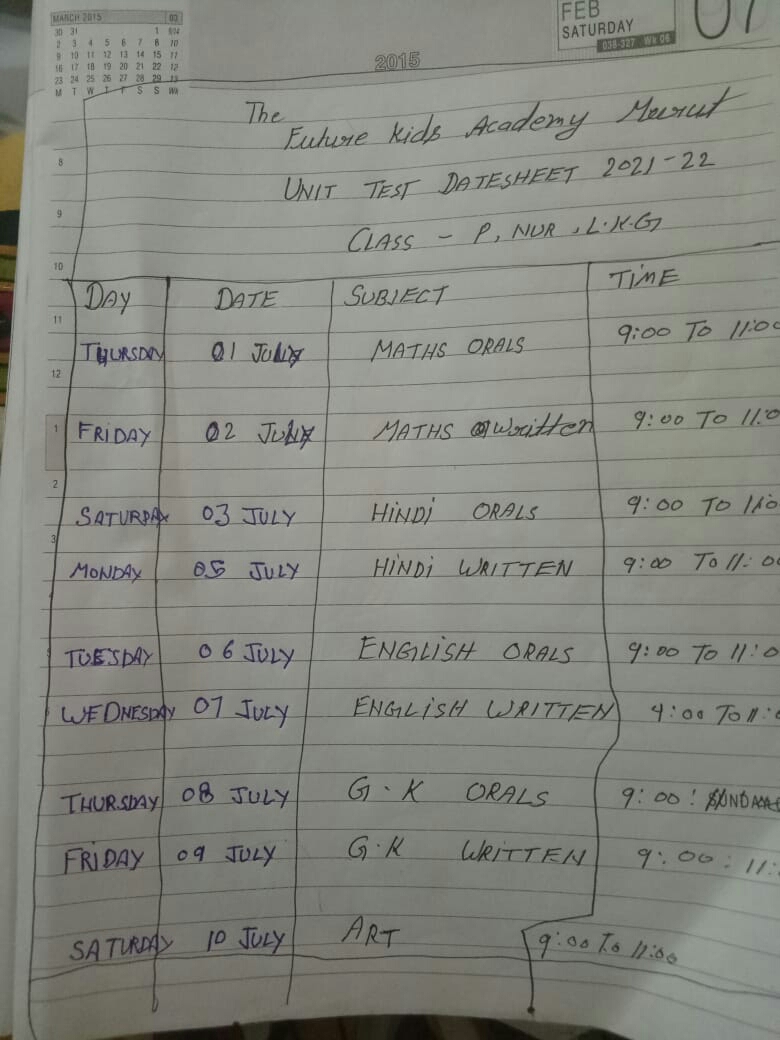 MARCH 2015 03
30 31 1 9/14
2 3 4 5 6 7 8 10
9 10 11 12 13 14 15 11
16 17 18 19 20 21 22 12
23 24 25 26 27 28 29 13
M T W T F S S Wk
FEB
SATURDAY
038-327 Wk 06
07
2015
The
Future Kids Academy Meerut
UNIT TEST DATESHEET 2021-22
CLASS - P, NUR, L.K.G
DAY DATE SUBJECT TIME
THURSDAY 01 JULY MATHS ORALS 9:00 TO 11:00
FRIDAY 02 JULY MATHS Written 9:00 TO 11:0
SATURDAY 03 JULY HINDI ORALS 9:00 TO 11:0
MONDAY 05 JULY HINDI WRITTEN 9:00 TO 11:00
TUESDAY 06 JULY ENGLISH ORALS 9:00 TO 11:0
WEDNESDAY 07 JULY ENGLISH WRITTEN 9:00 TO 11:0
THURSDAY 08 JULY G.K ORALS 9:00:
FRIDAY 09 JULY G.K WRITTEN 9:00: 11:
SATURDAY 10 JULY ART 9:00 To 11:00
8
9
10
11
12
1
2
3